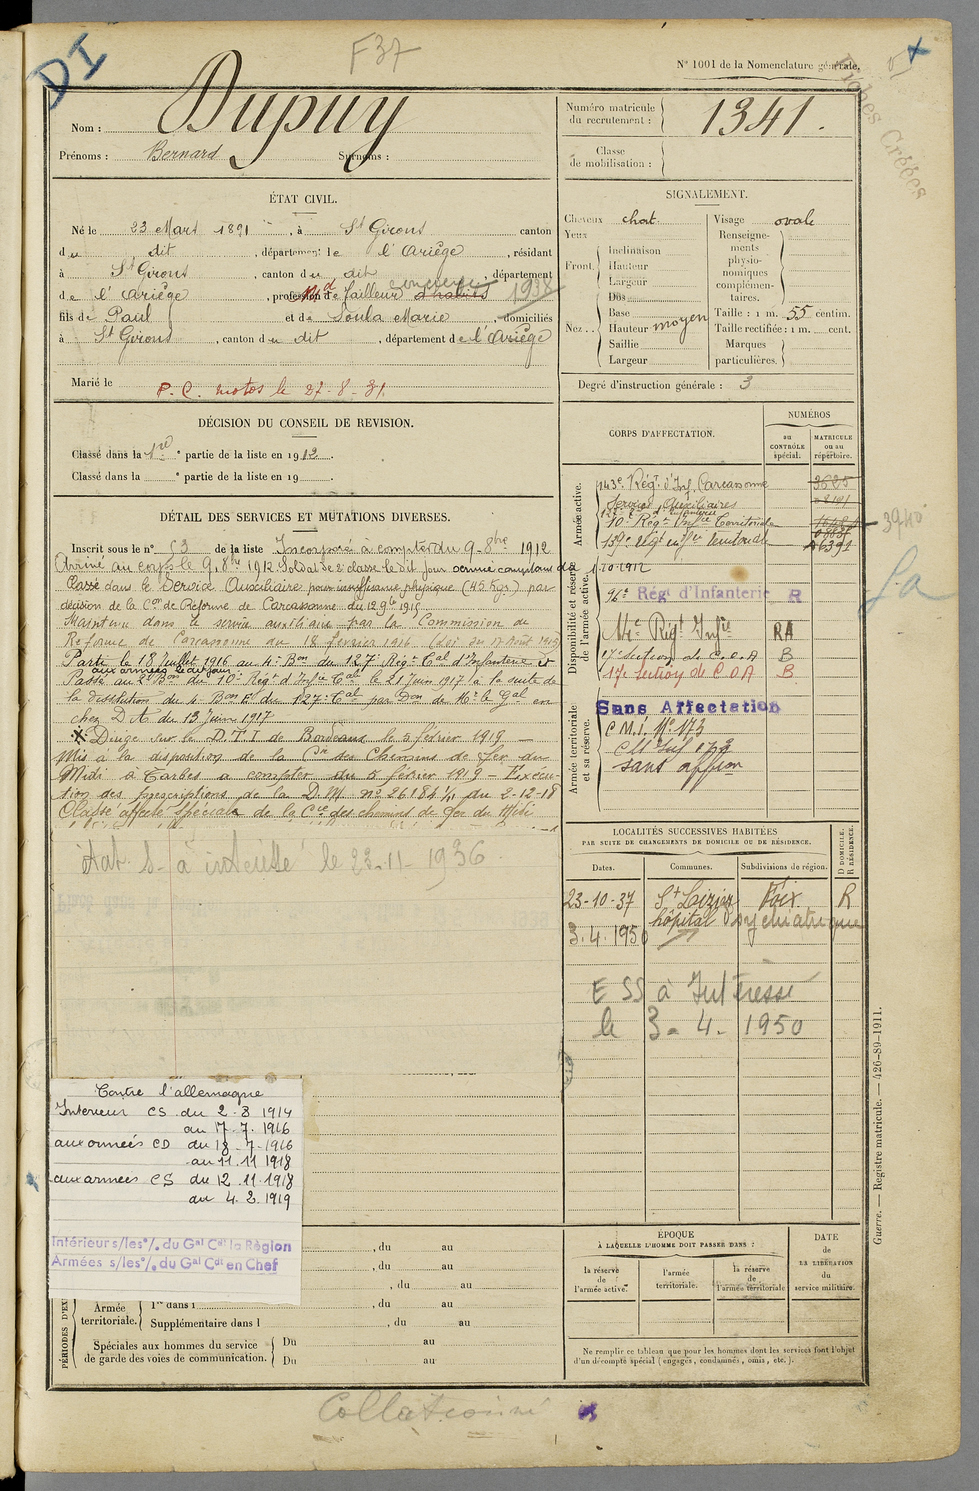 DI
F37
N° 1001 de la Nomenclature générale.
Fiches Créées
Nom : Dupuy
Prénoms : Bernard Surnoms :
Numéro matricule du recrutement : 1341.
Classe de mobilisation :
ÉTAT CIVIL.
Né le 23 Mars 1891, à St Girons canton
du dit, département de l'Ariège, résidant
à St Girons, canton du dit, département
de l'Ariège, profession de tailleur d'habits 1938
fils de Paul et de Soula Marie, domiciliés
à St Girons, canton du dit, département de l'Ariège
Marié le
P. C. motos le 27-8-31
SIGNALEMENT.
Cheveux chat.
Yeux
Front. Inclinaison
Hauteur
Largeur
Nez. Dos
Base
Hauteur moyen
Saillie
Largeur
Visage ovale
Renseignements physionomiques complémentaires.
Taille : 1 m. 55 centim.
Taille rectifiée : 1 m. cent.
Marques particulières.
Degré d'instruction générale : 3
DÉCISION DU CONSEIL DE REVISION.
Classé dans la 1re partie de la liste en 1912.
Classé dans la e partie de la liste en 19
DÉTAIL DES SERVICES ET MUTATIONS DIVERSES.
Inscrit sous le n° 53 de la liste Incorporé à compter du 9-8bre 1912
Arrivé au corps le 9.8bre 1912 Soldat de 2e classe le dit jour compter du 1-10-1912
Classé dans le Service Auxiliaire pour insuffisance physique (45 kgs) par
décision de la Con de Réforme de Carcassonne du 29 1915
Maintenu dans le service auxiliaire par la Commission de
Réforme de Carcassonne du 18 février 1916 (Loi du 17 Août 1915)
Parti le 18 Juillet 1916 au 4e Bon du 127e Régt Cal d'Infanterie
aux armées le dit jour
Passé au 2e Bon du 10e Régt d'Infie Cale le 21 Juin 1917 à la suite de
la dissolution du 4 Bon E. du 127e Cal par Don de Mr le Gal en
chef D A du 13 Juin 1917
Dirigé sur le D.T.I de Bordeaux le 5 février 1919 —
Mis à la disposition de la Cie des Chemins de fer du
Midi à Tarbes à compter du 5 février 1919 — Exécu-
tion des prescriptions de la D.M. no 26184 1/1 du 2-12-18
Classé affecté spécial de la Cie des chemins de fer du Midi
état à intéressé le 23-11-1936.
CORPS D'AFFECTATION.
NUMÉROS
au CONTRÔLE spécial.
MATRICULE ou au répertoire.
Armée active.
143e Régt d'Inf. Carcassonne 3625
Services Auxiliaires
10e Régt Infie Territoriale
139e Régt Infie Territoriale
3940
Disponibilité et réserve de l'armée active.
96e Régt d'Infanterie R
14e Régt Infie RA
17e Section de C.O.A B
17e section de C O A B
Armée territoriale et sa réserve.
Sans Affectation
C M.I. No 173
C M Inf 173
sans affon
LOCALITÉS SUCCESSIVES HABITÉES
PAR SUITE DE CHANGEMENTS DE DOMICILE OU DE RÉSIDENCE.
Dates. Communes. Subdivisions de région. D DOMICILE. R RÉSIDENCE.
23-10-37 St Lizier Foix R
hôpital Psychiatrique
3.4.1950
E SS à Intéressé
le 3-4-1950
Contre l'allemagne
Interieur CS du 2-8 1914
au 17-7-1916
aux armeés CD du 18-7-1916
au 11.11 1918
aux armees CS du 12.11.1918
au 4.2.1919
Intérieur s/les o/. du Gal Cdt la Région
Armées s/les o/. du Gal Cdt en Chef
, du au
, du au
, du au
PÉRIODES D'EX
Armée territoriale.
1re dans l , du au
Supplémentaire dans l , du au
Spéciales aux hommes du service de garde des voies de communication.
Du au
Du au
ÉPOQUE
À LAQUELLE L'HOMME DOIT PASSER DANS :
la réserve de l'armée active.
l'armée territoriale.
la réserve de l'armée territoriale
DATE de LA LIBÉRATION du service militaire.
Ne remplir ce tableau que pour les hommes dont les services font l'objet
d'un décompte spécial (engagés, condamnés, omis, etc.).
Guerre. — Registre matricule. — 426-89-1911.
Collationné